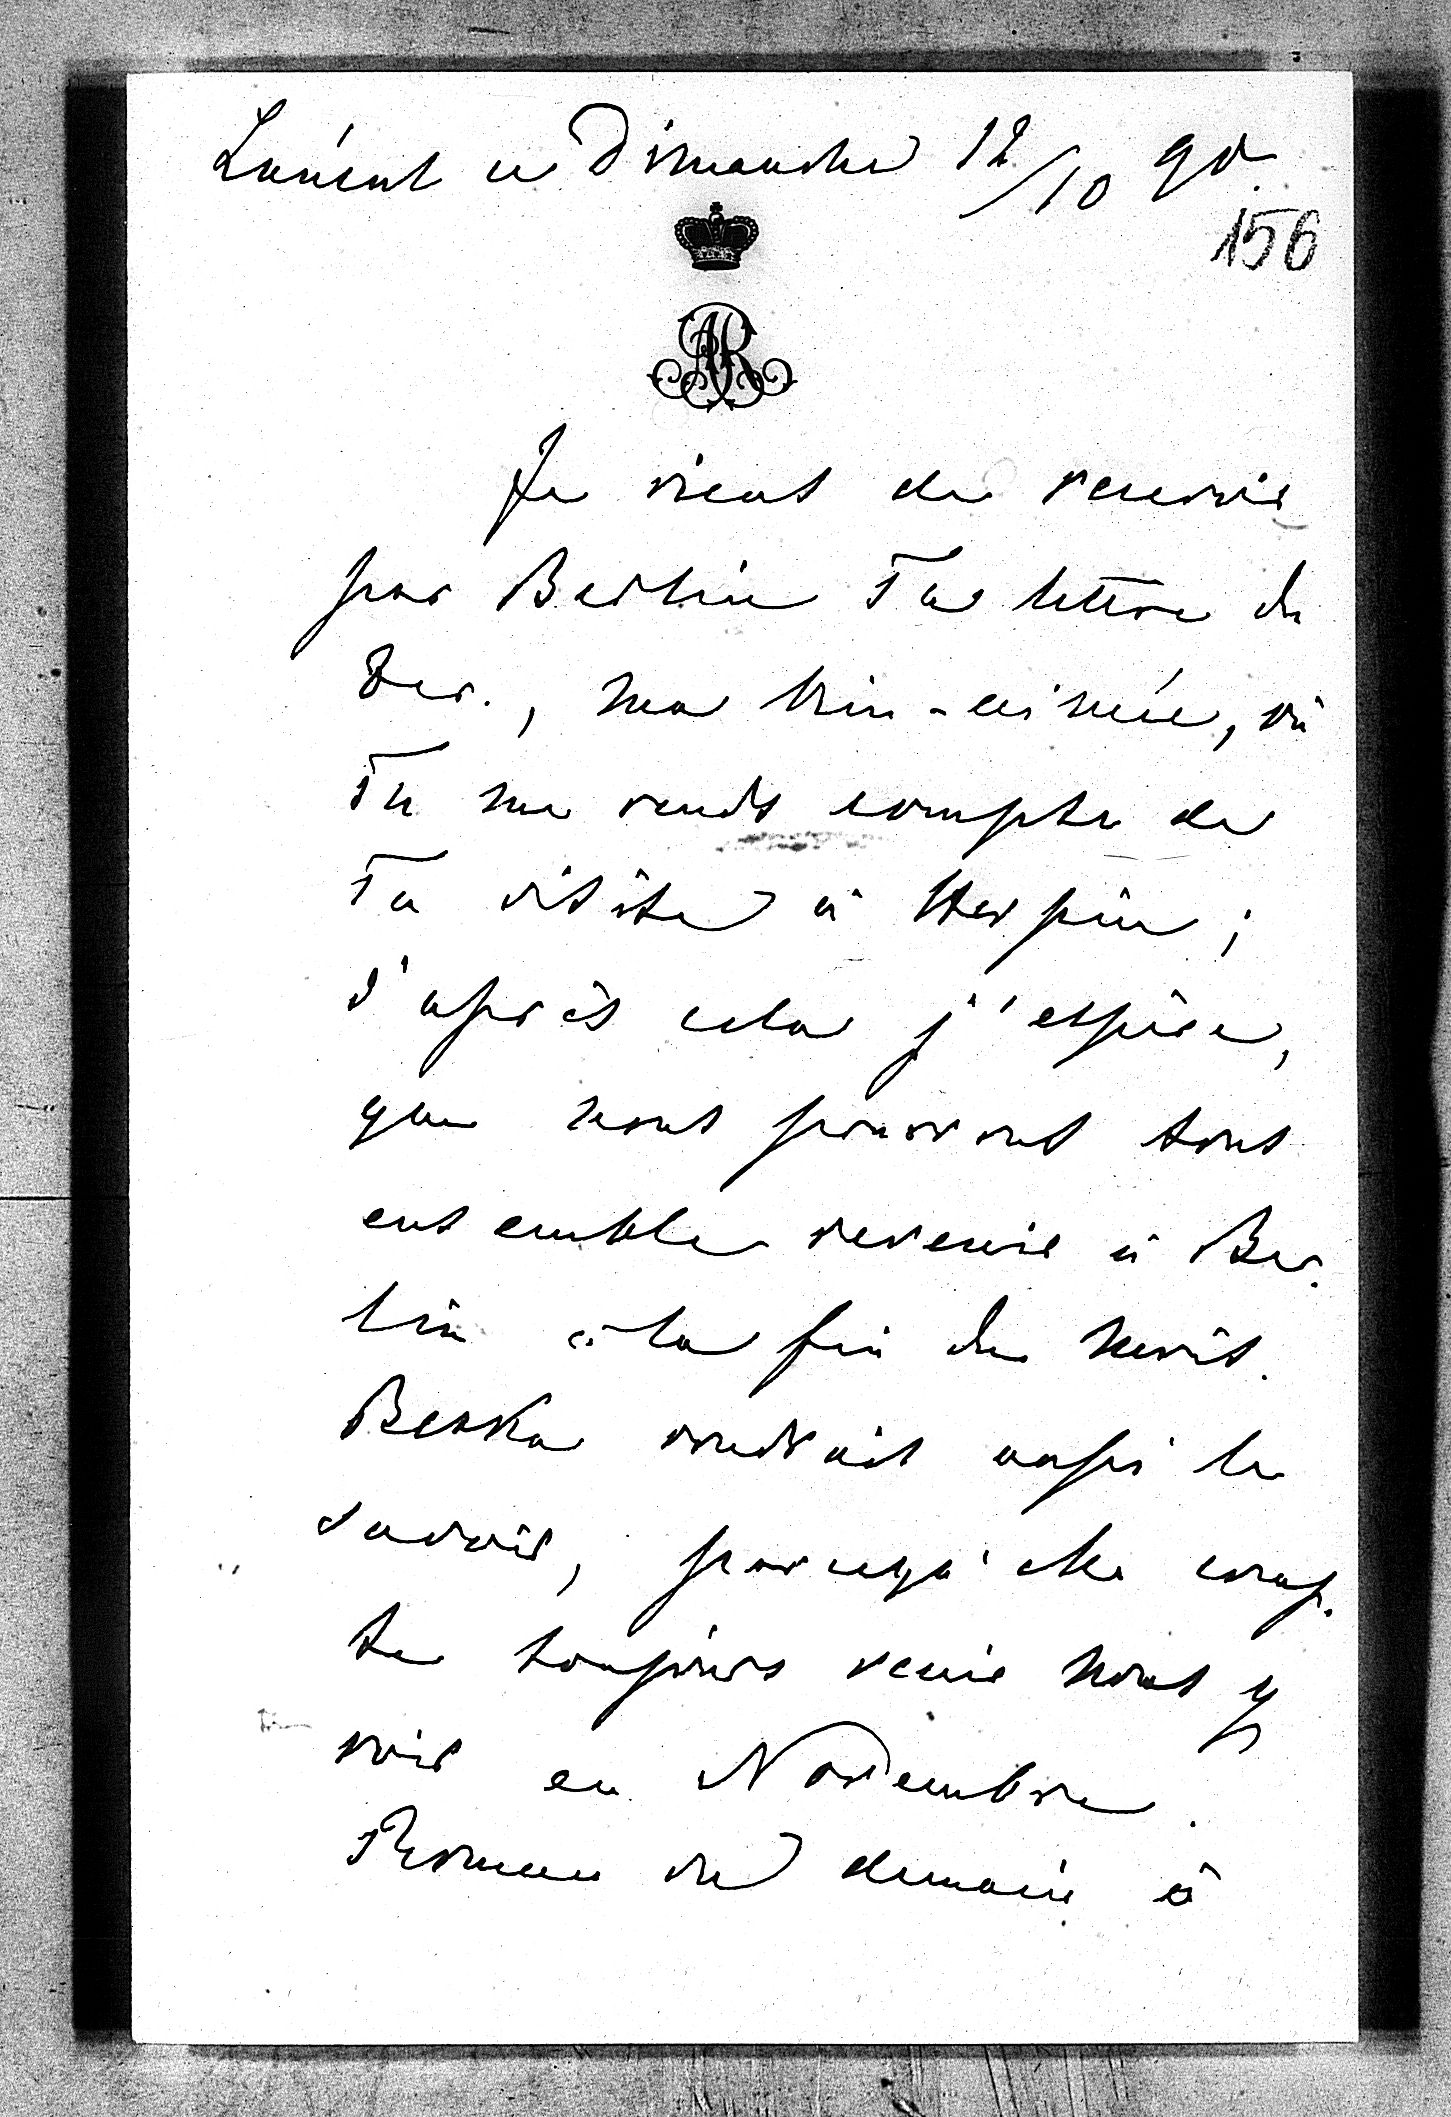 Lancut ce Dimanche 12/10 90.
156
AR
Je viens de recevoir
par Berlin Ta lettre du
, ma bien-aimée, où
Tu me rends compte de
Ta visite à Herpin ;
d'après cela j'espère,
que nous pourrons tous
ensemble revenir à Ber.
lin à la fin du mois.
Beska voudrait aussi le
savoir, parcequ'elle comp.
te toujours venir nous y
voir en Novembre.
Roman va demain à